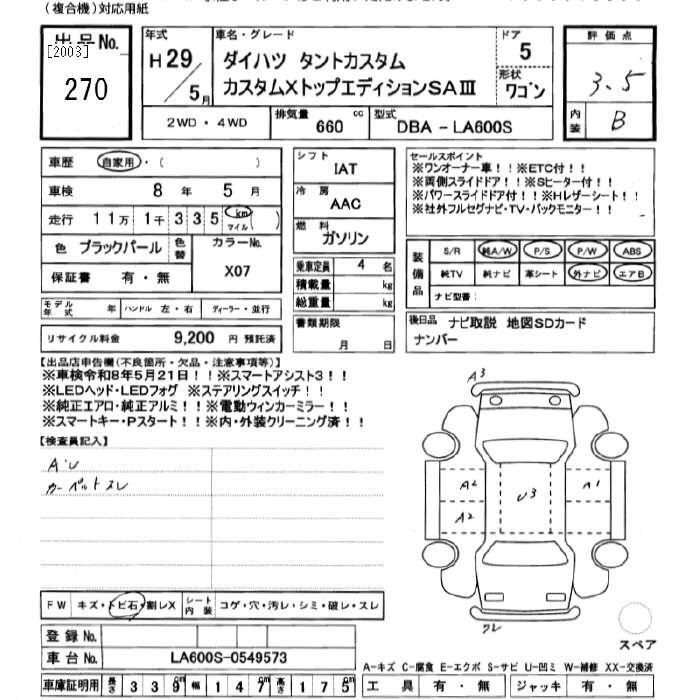 (複合機)対応用紙
出品No.
[2003]
270
年式
H29/5月
車名・グレード
ダイハツ タントカスタム
カスタムXトップエディションSAⅢ
ドア
5
形状
ワゴン
評価点
3.5
内装
B
2WD・4WD
排気量
660 cc
型式
DBA - LA600S
車歴 自家用・( )
車検 8 年 5 月
走行 11万 1千 335 km マイル ( )
色 ブラックパール
色替
カラーNo.
X07
保証書 有・無
モデル年式 年 ハンドル 左・右 ディーラー・並行
リサイクル料金 9,200 円 預託済
シフト
IAT
冷房
AAC
燃料
ガソリン
乗車定員 4 名
積載量 kg
総重量 kg
書類期限
月 日
セールスポイント
※ワンオーナー車!!※ETC付!!
※両側スライドドア!!※Sヒーター付!!
※パワースライドドア付!!※Hレザーシート!!
※社外フルセグナビ・TV・バックモニター!!
装備品
S/R 純A/W P/S P/W ABS
純TV 純ナビ 革シート 外ナビ エアB
ナビ型番:
後日品 ナビ取説 地図SDカード
ナンバー
【出品店申告欄(不良箇所・欠品・注意事項等)】
※車検令和8年5月21日!!※スマートアシスト3!!
※LEDヘッド・LEDフォグ ※ステアリングスイッチ!!
※純正エアロ・純正アルミ!!※電動ウィンカーミラー!!
※スマートキー・Pスタート!!※内・外装クリーニング済!!
【検査員記入】
A・U
カーペットスレ
A3
A2
U3
A1
A2
FW キズ・トビ石・割レX
シート内装 コゲ・穴・汚レ・シミ・破レ・スレ
スペア
登録No.
車台No. LA600S-0549573
A-キズ C-腐食 E-エクボ S-サビ U-凹ミ W-補修 XX-交換済
車庫証明用 長さ 339cm 幅 147cm 高さ 175cm
工具 有・無 ジャッキ 有・無